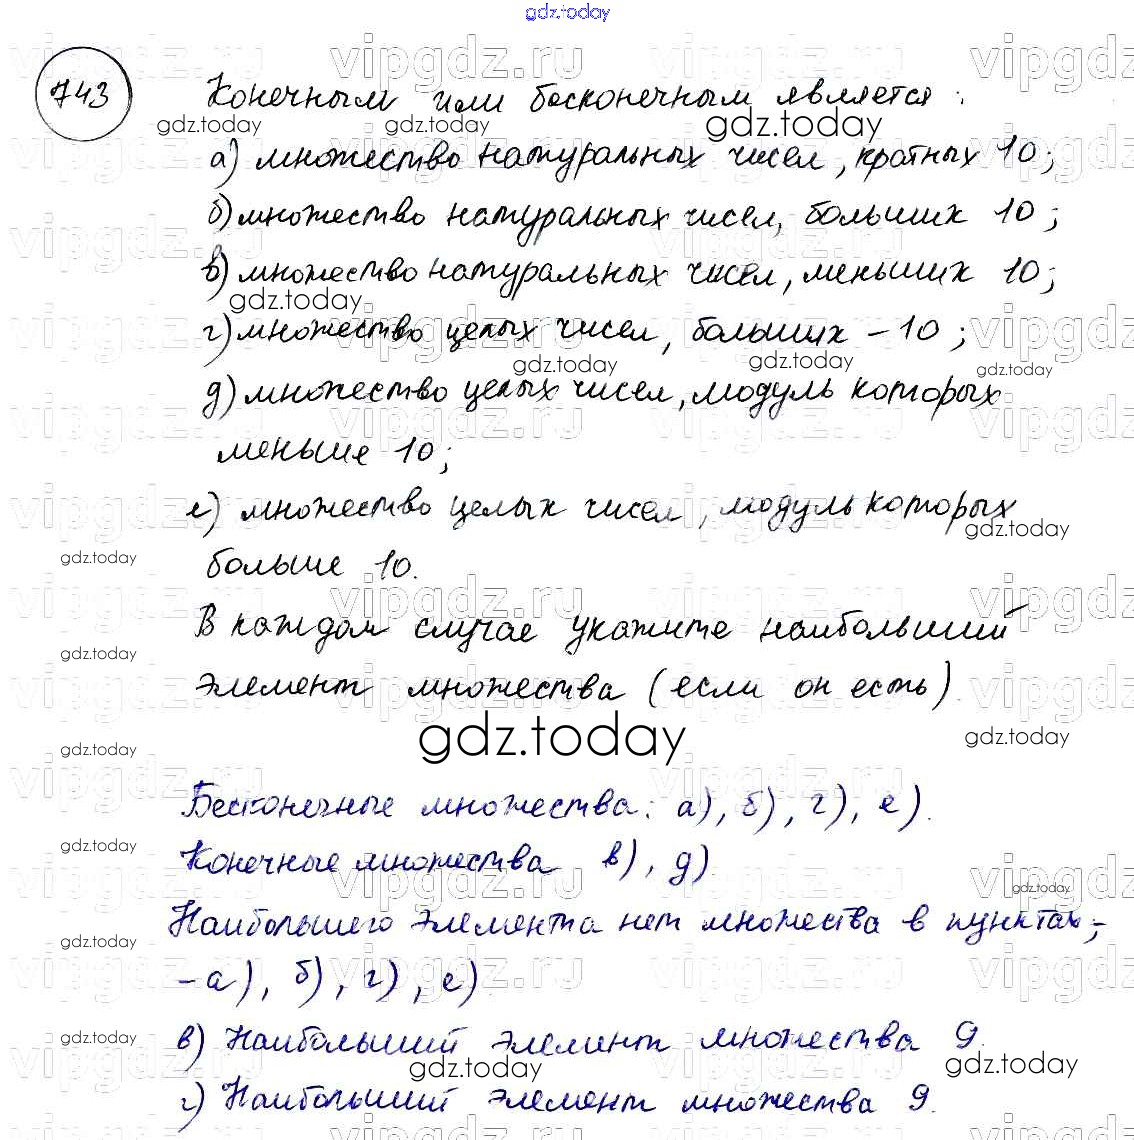 gdz.today
743
Конечным или бесконечным является:
а) множество натуральных чисел, кратных 10;
б) множество натуральных чисел, больших 10;
в) множество натуральных чисел, меньших 10;
г) множество целых чисел, больших -10;
д) множество целых чисел, модуль которых
меньше 10;
е) множество целых чисел, модуль которых
больше 10.
В каждом случае укажите наибольший
элемент множества (если он есть).
gdz.today
Бесконечные множества: а), б), г), е).
Конечные множества в), д)
Наибольшего элемента нет множества в пунктах;
-а), б), г), е).
в) Наибольший элемент множества 9.
г) Наибольший элемент множества 9.